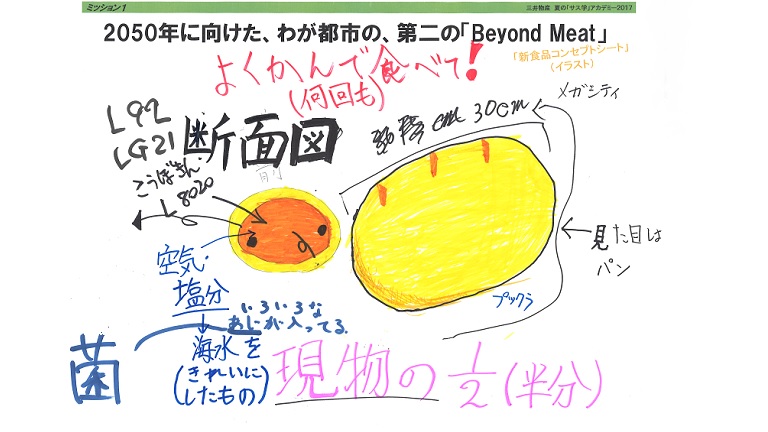 ミッション1
三井物産 夏の「サス学」アカデミー2017
2050年に向けた、わが都市の、第二の「Beyond Meat」
「新食品コンセプトシート」
(イラスト)
よくかんで食べて!
(何回も)
メガシティ
30cm
LG21
断面図
こうぼきん
L8020
見た目は
パン
プックラ
空気・
塩分
いろいろな
あじが入ってる。
海水を
(きれいに
したもの)
菌
現物の1/2(半分)